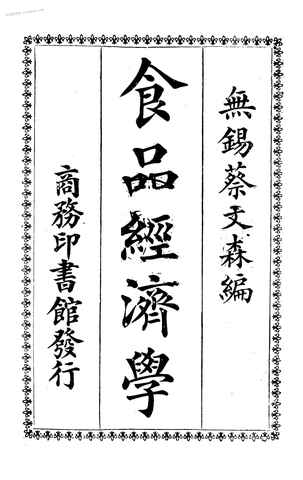 無錫蔡文森編
食品經濟學
商務印書館發行